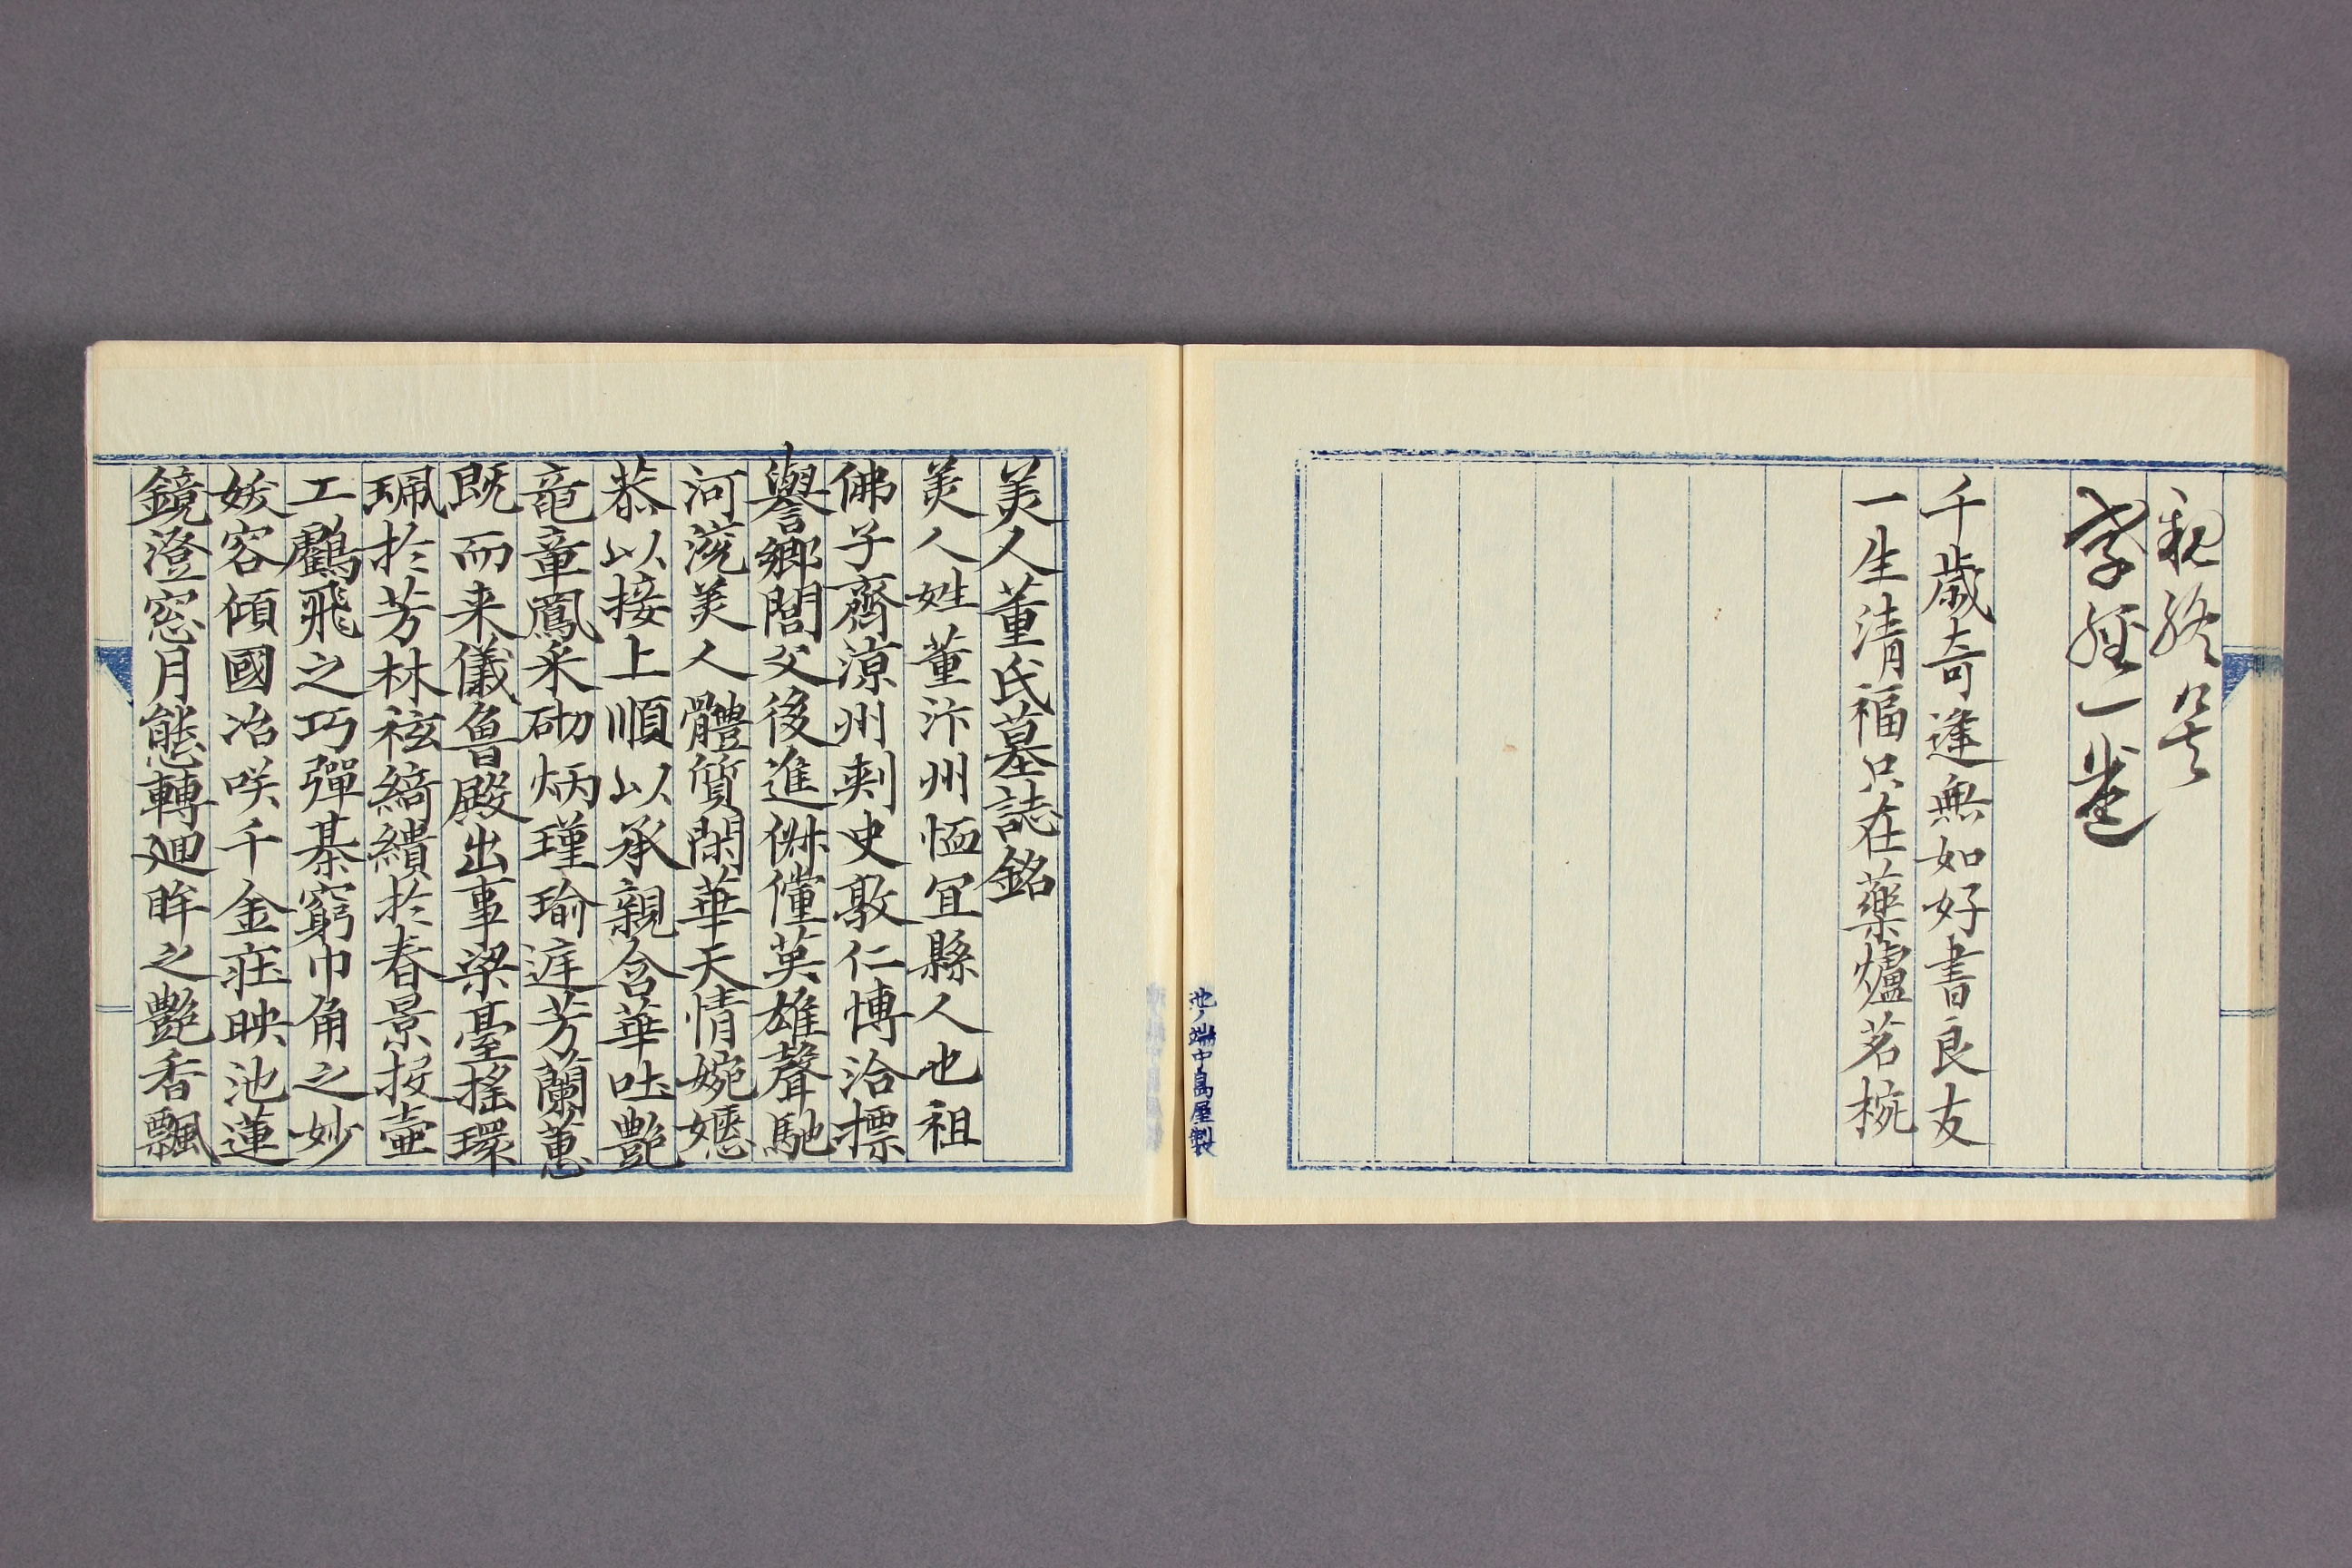 親終矣
孝經一卷
千歳奇逢無如好書良友
一生清福只在藥爐茗椀
池ノ端中島屋製
美人董氏墓誌銘
美人姓董汴州恤冝縣人也祖
佛子齊涼州刺史敦仁博洽摽
譽鄉閭父後進俶儻英雄聲馳
河渷美人體質閑華天情婉嫕
恭以接上順以承親含華吐艶
竜章鳳采砌炳瑾瑜遅芳蘭蕙
既而来儀魯殿出事梁臺搖環
珮扵芳林袨綺繢扵春景投壷
工鸛飛之巧彈棊窮巾角之妙
妖容傾國冶咲千金莊映池蓮
鏡澄窓月態轉廻眸之艶香飄